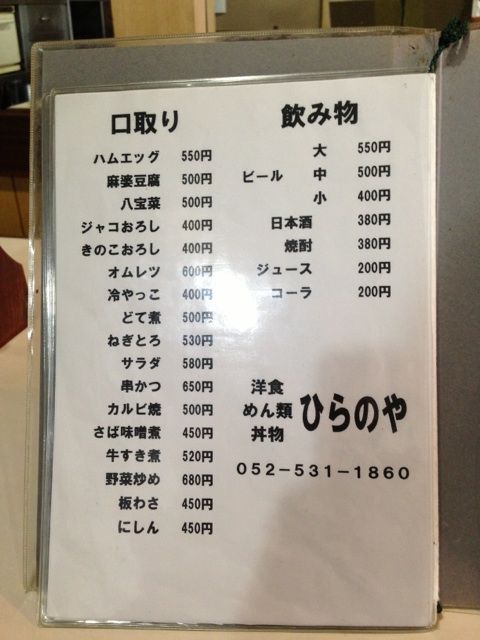 口取り
ハムエッグ 550円
麻婆豆腐 500円
八宝菜 500円
ジャコおろし 400円
きのこおろし 400円
オムレツ 600円
冷やっこ 400円
どて煮 500円
ねぎとろ 530円
サラダ 580円
串かつ 650円
カルビ焼 500円
さば味噌煮 450円
牛すき煮 520円
野菜炒め 680円
板わさ 450円
にしん 450円
飲み物
大 550円
ビール 中 500円
小 400円
日本酒 380円
焼酎 380円
ジュース 200円
コーラ 200円
洋食
めん類 ひらのや
丼物
052-531-1860